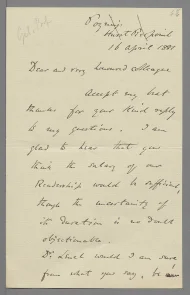 Poynings
Hurst Pierpoint
16 April 1881
Dear and very honoured colleague
Accept my best
thanks for your kind reply
to my questions. I am
glad to hear that you
think the salary of our
Readership would be sufficient,
though the uncertainty of
its duration is no doubt
objectionable.
Dr. would I am sure
from what you say, be an